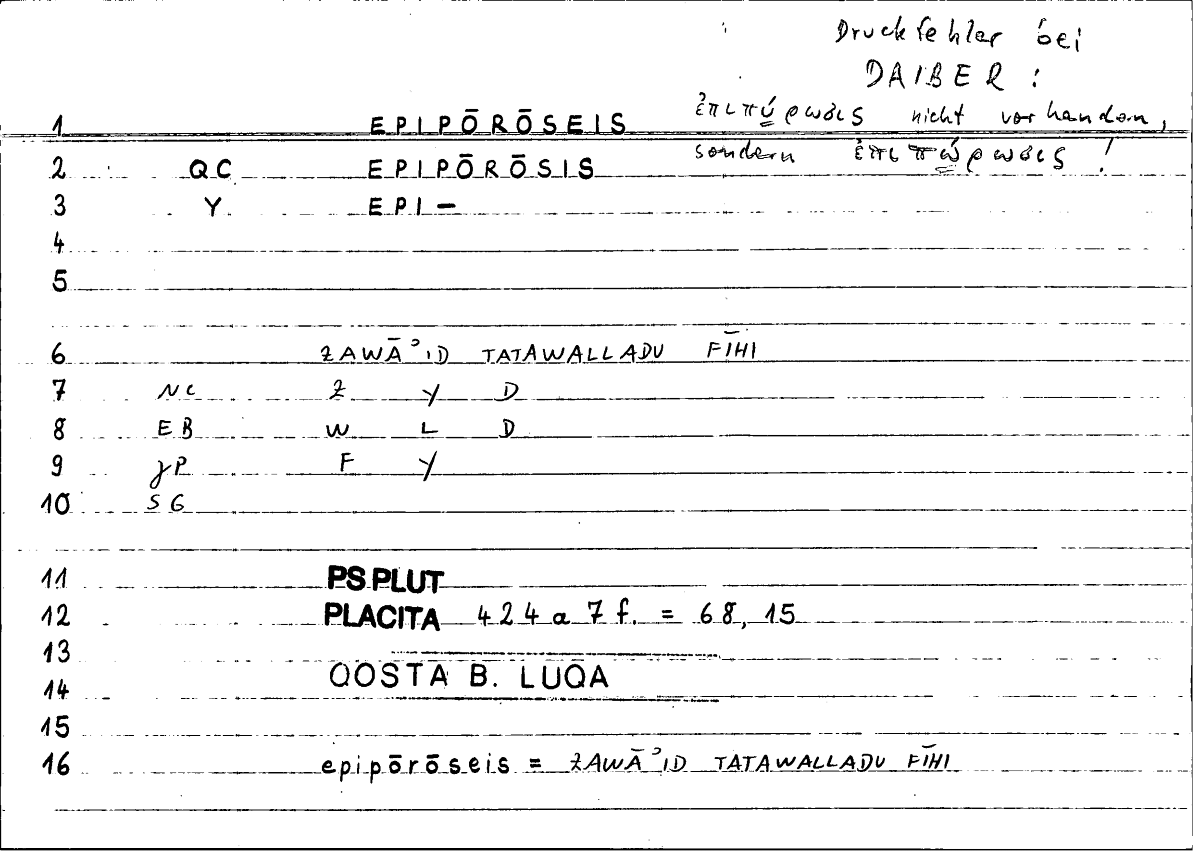 Druckfehler bei
DAIBER :
ἐπιπύρωσις nicht vorhanden,
sondern ἐπιπώρωσις !
1 EPIPŌRŌSEIS
2 QC EPIPŌRŌSIS
3 Y EPI-
4
5
6 ZAWĀʾID TATAWALLADU FĪHI
7 NC Z Y D
8 EB W L D
9 γP F Y
10 SG
11 PS PLUT
12 PLACITA 424 a 7 f. = 68, 15
13
14 QOSTA B. LUQA
15
16 epipōrōseis = ZAWĀʾID TATAWALLADU FĪHI